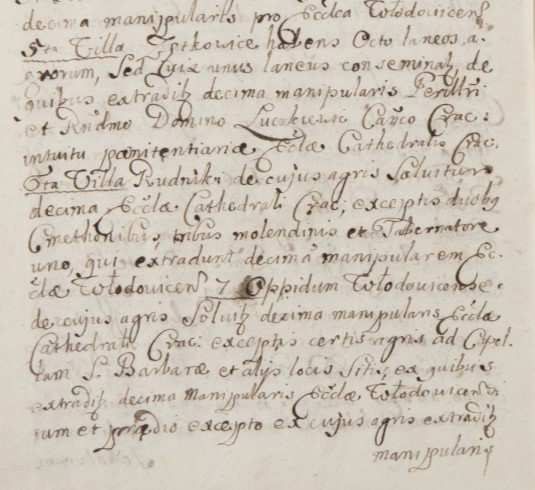 decima manipularis pro Eccłca Włodovicens
5ta Villa Zytkowice habens Octo laneos a-
grorum, sed vix unus laneus conseminatz, de
quibus extraditz decima manipularis Perillri
et Rndmo Domino Luczkiewic Canco Crac:
intuitu pœnitentiariæ Ecclæ Cathedralis Crac.
6ta Villa Rudniki de cujus agris Solvitur
decima Ecclæ Cathedrali Crac; exceptis duobq
Cmethonibus, tribus molendinis et Tabernatore
uno, qui extradunt decimā manipularem Ec-
clæ Włodovicens 7 Oppidum Włodovicense.
de cujus agris Solvitz decima manipularis Ecclæ
Cathedrali Crac: exceptis certis agris ad Capel-
lam S. Barbaræ et alijs locis Sitis, ex quibus
extraditz decima manipularis Ecclæ Włodovicensi
tum et prædio excepto ex cujus agris extraditz
manipularis